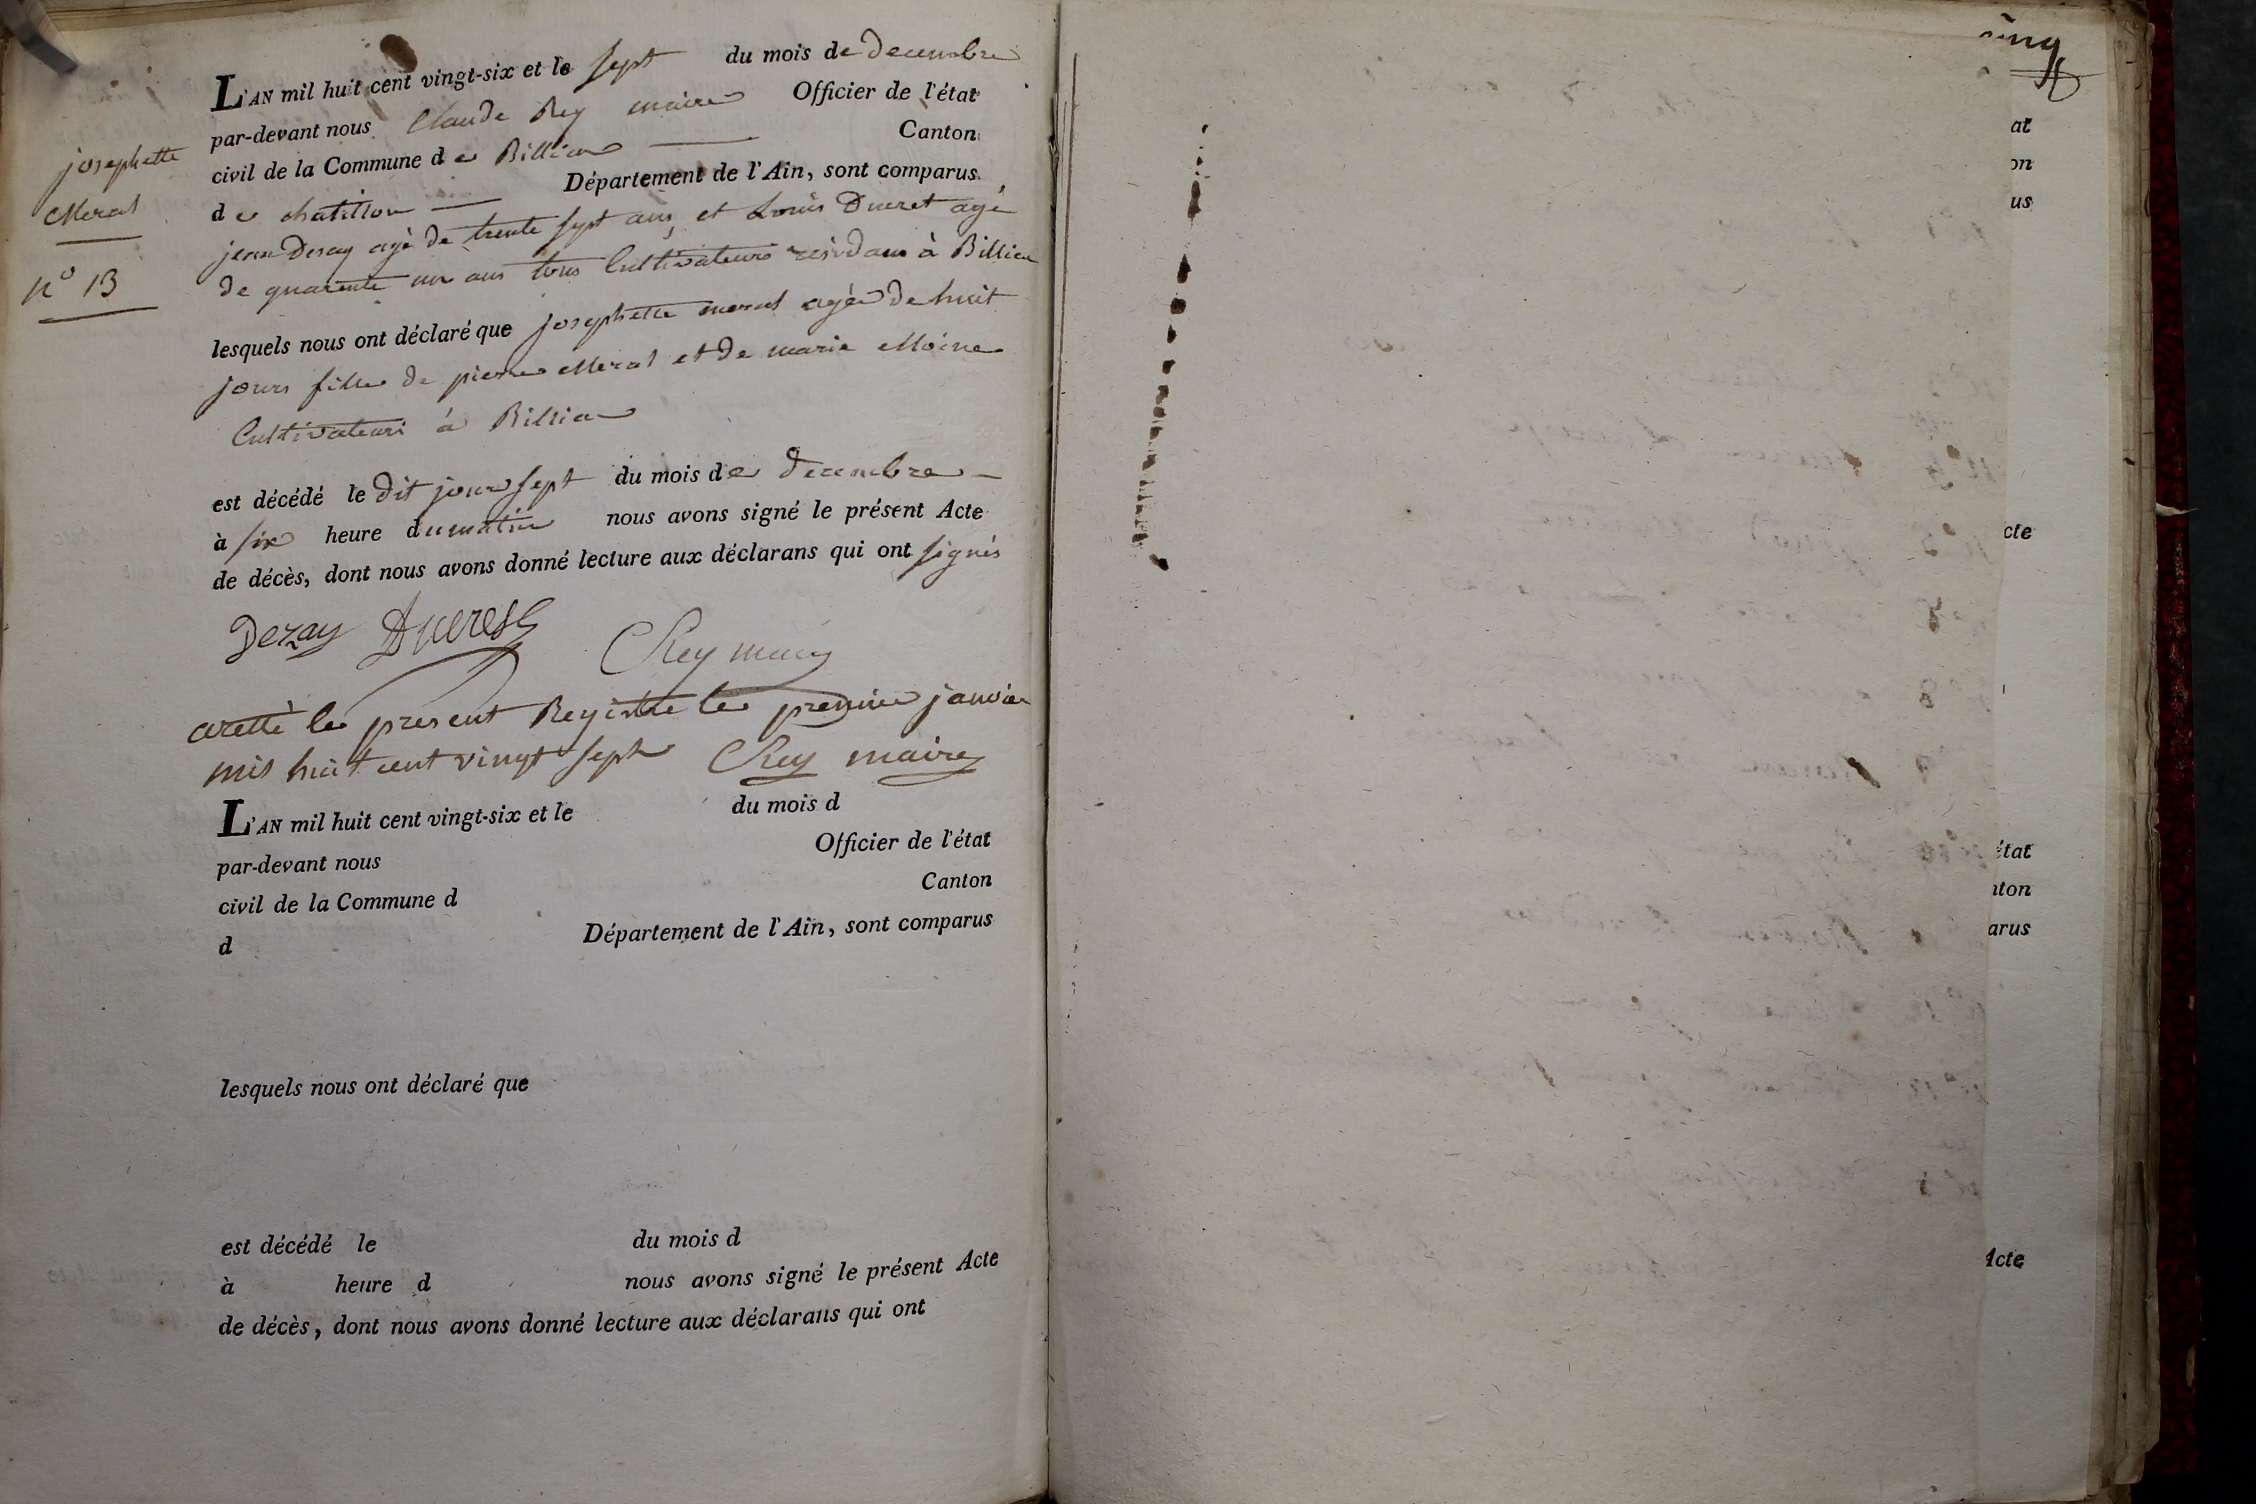 josephette
Meral
n° 13
L'AN mil huit cent vingt-six et le sept du mois de decembre
par-devant nous Claude Rey maire Officier de l'état
civil de la Commune de Billia Canton
de chatillon Département de l'Ain, sont comparus
jean Dezay agé de trente sept ans et Louis Ducret agé
de quarente un ans tous Cultivateurs residans à Billia
lesquels nous ont déclaré que josephette meral agée de huit
jours fille de pierre Meral et de marie Moine
Cultivateurs à Billia
est décédé le dit jour sept du mois de decembre
à six heure du matin nous avons signé le présent Acte
de décès, dont nous avons donné lecture aux déclarans qui ont signés
Dezay Ducret
CRey maire
aretté le present Registre le premier janvier
mil huit cent vingt sept CRey maire
L'AN mil huit cent vingt-six et le du mois d
par-devant nous Officier de l'état
civil de la Commune d Canton
d Département de l'Ain, sont comparus
lesquels nous ont déclaré que
est décédé le du mois d
à heure d nous avons signé le présent Acte
de décès, dont nous avons donné lecture aux déclarans qui ont
at
on
us
cte
état
nton
arus
Acte